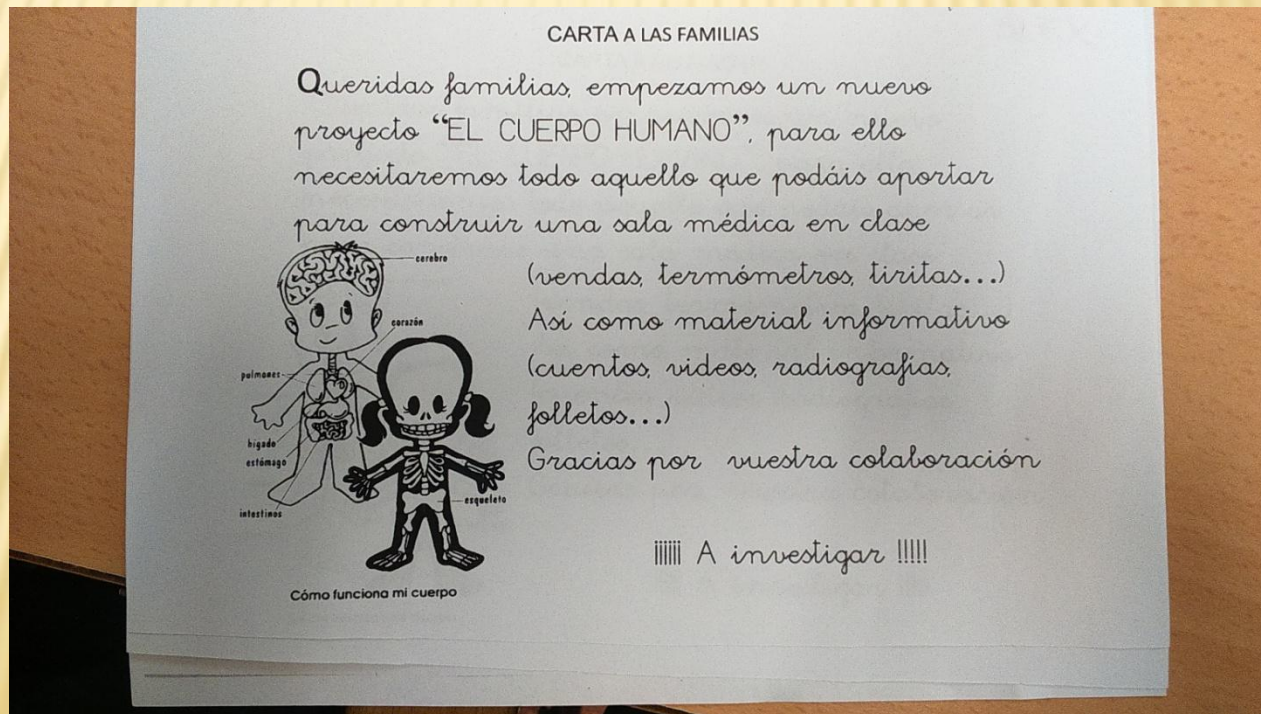 CARTA A LAS FAMILIAS
Queridas familias, empezamos un nuevo
proyecto “EL CUERPO HUMANO”, para ello
necesitaremos todo aquello que podáis aportar
para construir una sala médica en clase
(vendas, termómetros, tiritas...)
Así como material informativo
(cuentos, videos, radiografías,
folletos...)
Gracias por vuestra colaboración
¡¡¡¡¡¡ A investigar !!!!!
cerebro
corazón
pulmones
hígado
estómago
intestinos
esqueleto
Cómo funciona mi cuerpo